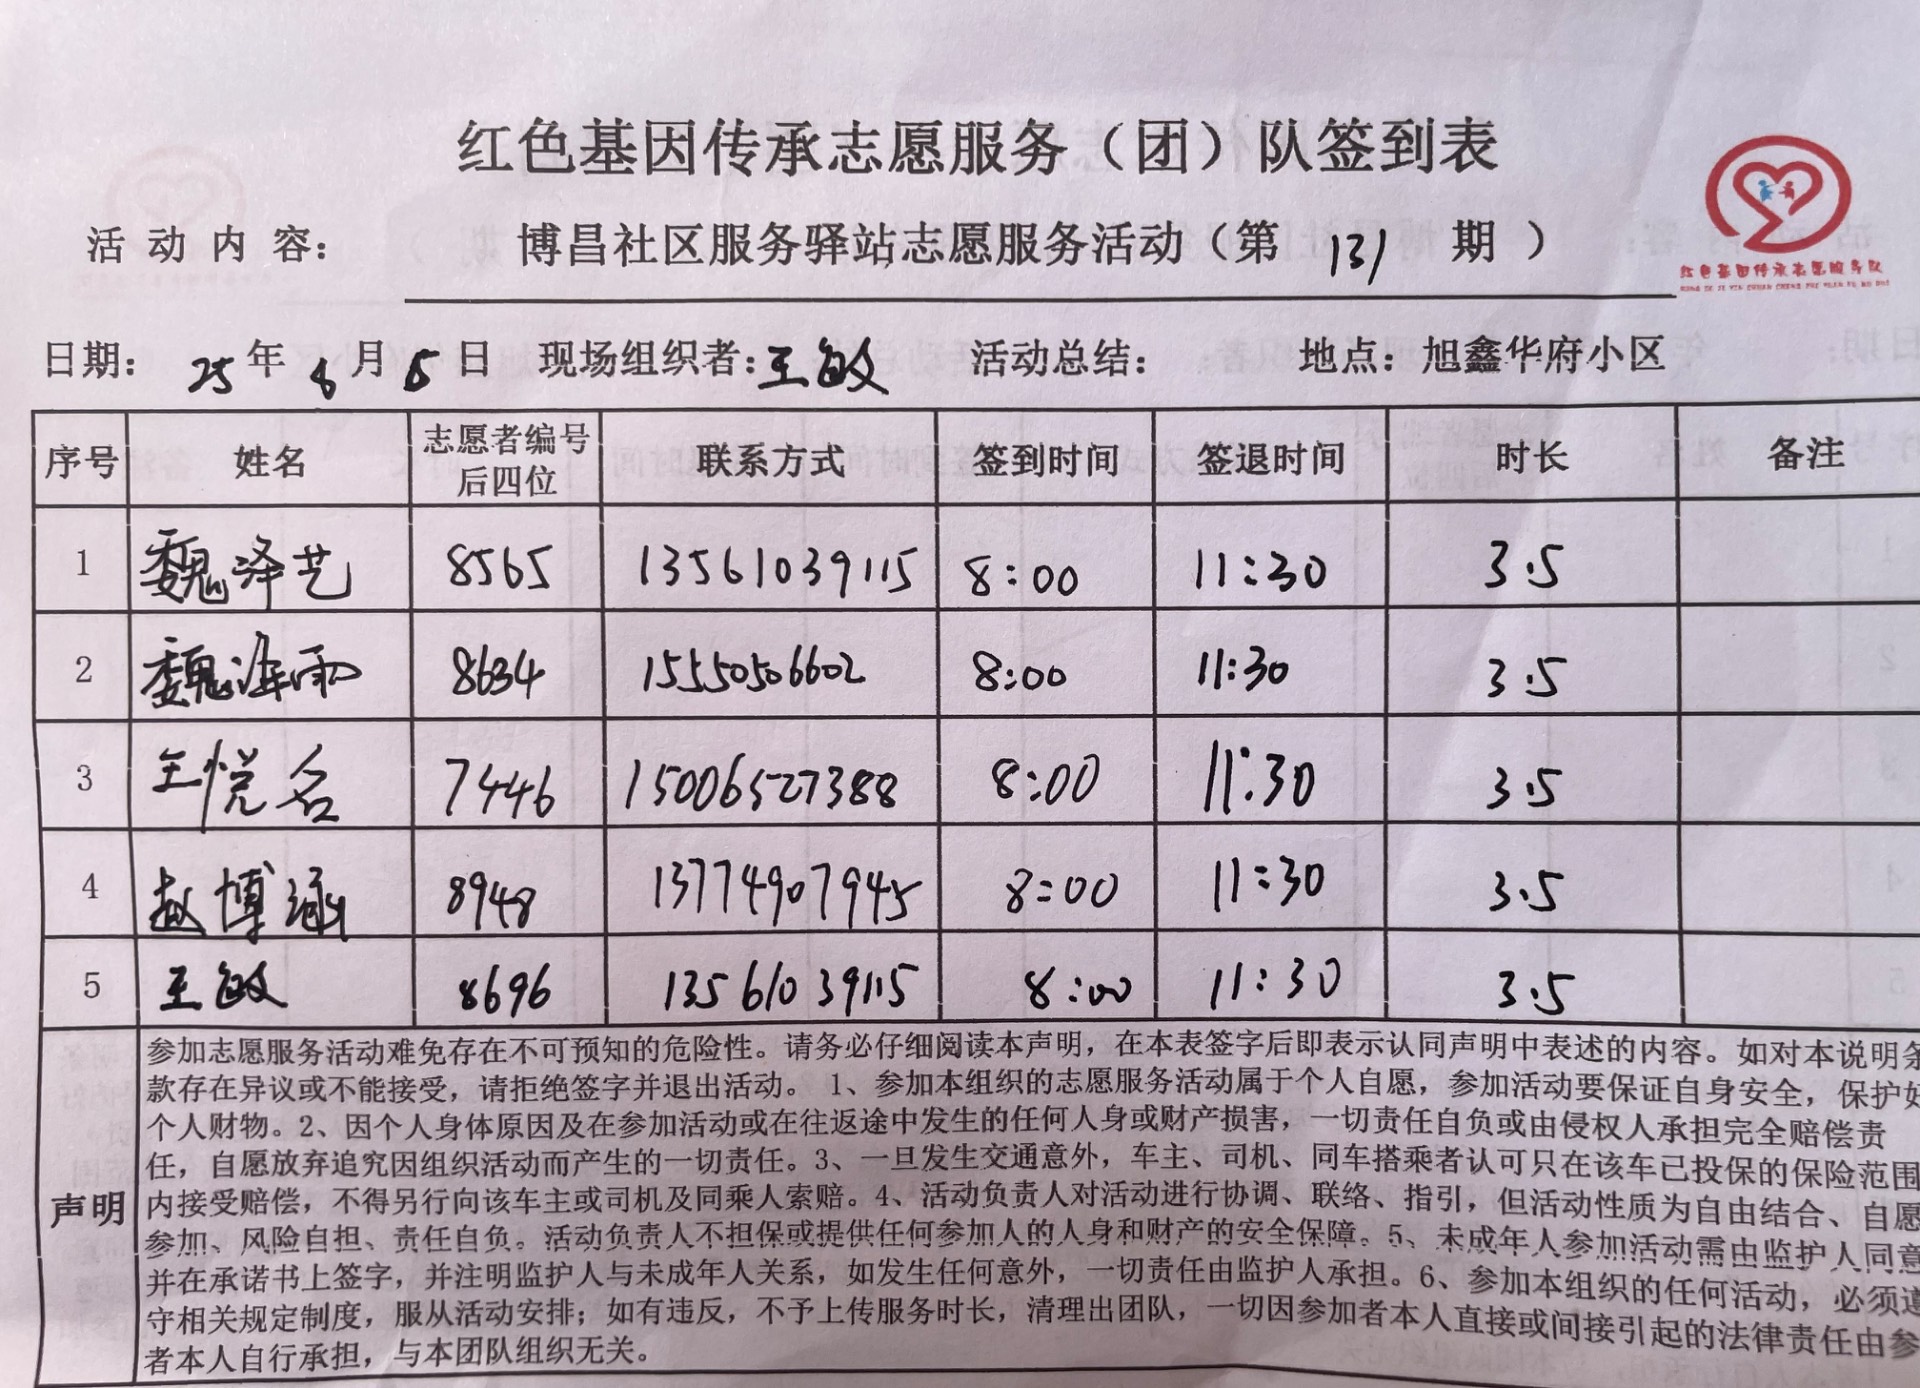 红色基因传承志愿服务（团）队签到表
活动内容： 博昌社区服务驿站志愿服务活动（第 131 期）
红色基因传承志愿服务队
日期： 25 年 8 月 5 日 现场组织者：王敏 活动总结： 地点：旭鑫华府小区
序号 姓名 志愿者编号后四位 联系方式 签到时间 签退时间 时长 备注
1 魏泽艺 8565 13561039115 8:00 11:30 3.5
2 魏海雨 8634 15550506602 8:00 11:30 3.5
3 王悦名 7446 15006527388 8:00 11:30 3.5
4 赵博涵 8948 13774907945 8:00 11:30 3.5
5 王敏 8696 13561039115 8:00 11:30 3.5
声明
参加志愿服务活动难免存在不可预知的危险性。请务必仔细阅读本声明，在本表签字后即表示认同声明中表述的内容。如对本说明条
款存在异议或不能接受，请拒绝签字并退出活动。1、参加本组织的志愿服务活动属于个人自愿，参加活动要保证自身安全，保护好
个人财物。2、因个人身体原因及在参加活动或在往返途中发生的任何人身或财产损害，一切责任自负或由侵权人承担完全赔偿责
任，自愿放弃追究因组织活动而产生的一切责任。3、一旦发生交通意外，车主、司机、同车搭乘者认可只在该车已投保的保险范围
内接受赔偿，不得另行向该车主或司机及同乘人索赔。4、活动负责人对活动进行协调、联络、指引，但活动性质为自由结合、自愿
参加、风险自担、责任自负。活动负责人不担保或提供任何参加人的人身和财产的安全保障。5、未成年人参加活动需由监护人同意
并在承诺书上签字，并注明监护人与未成年人关系，如发生任何意外，一切责任由监护人承担。6、参加本组织的任何活动，必须遵
守相关规定制度，服从活动安排；如有违反，不予上传服务时长，清理出团队，一切因参加者本人直接或间接引起的法律责任由参
者本人自行承担，与本团队组织无关。